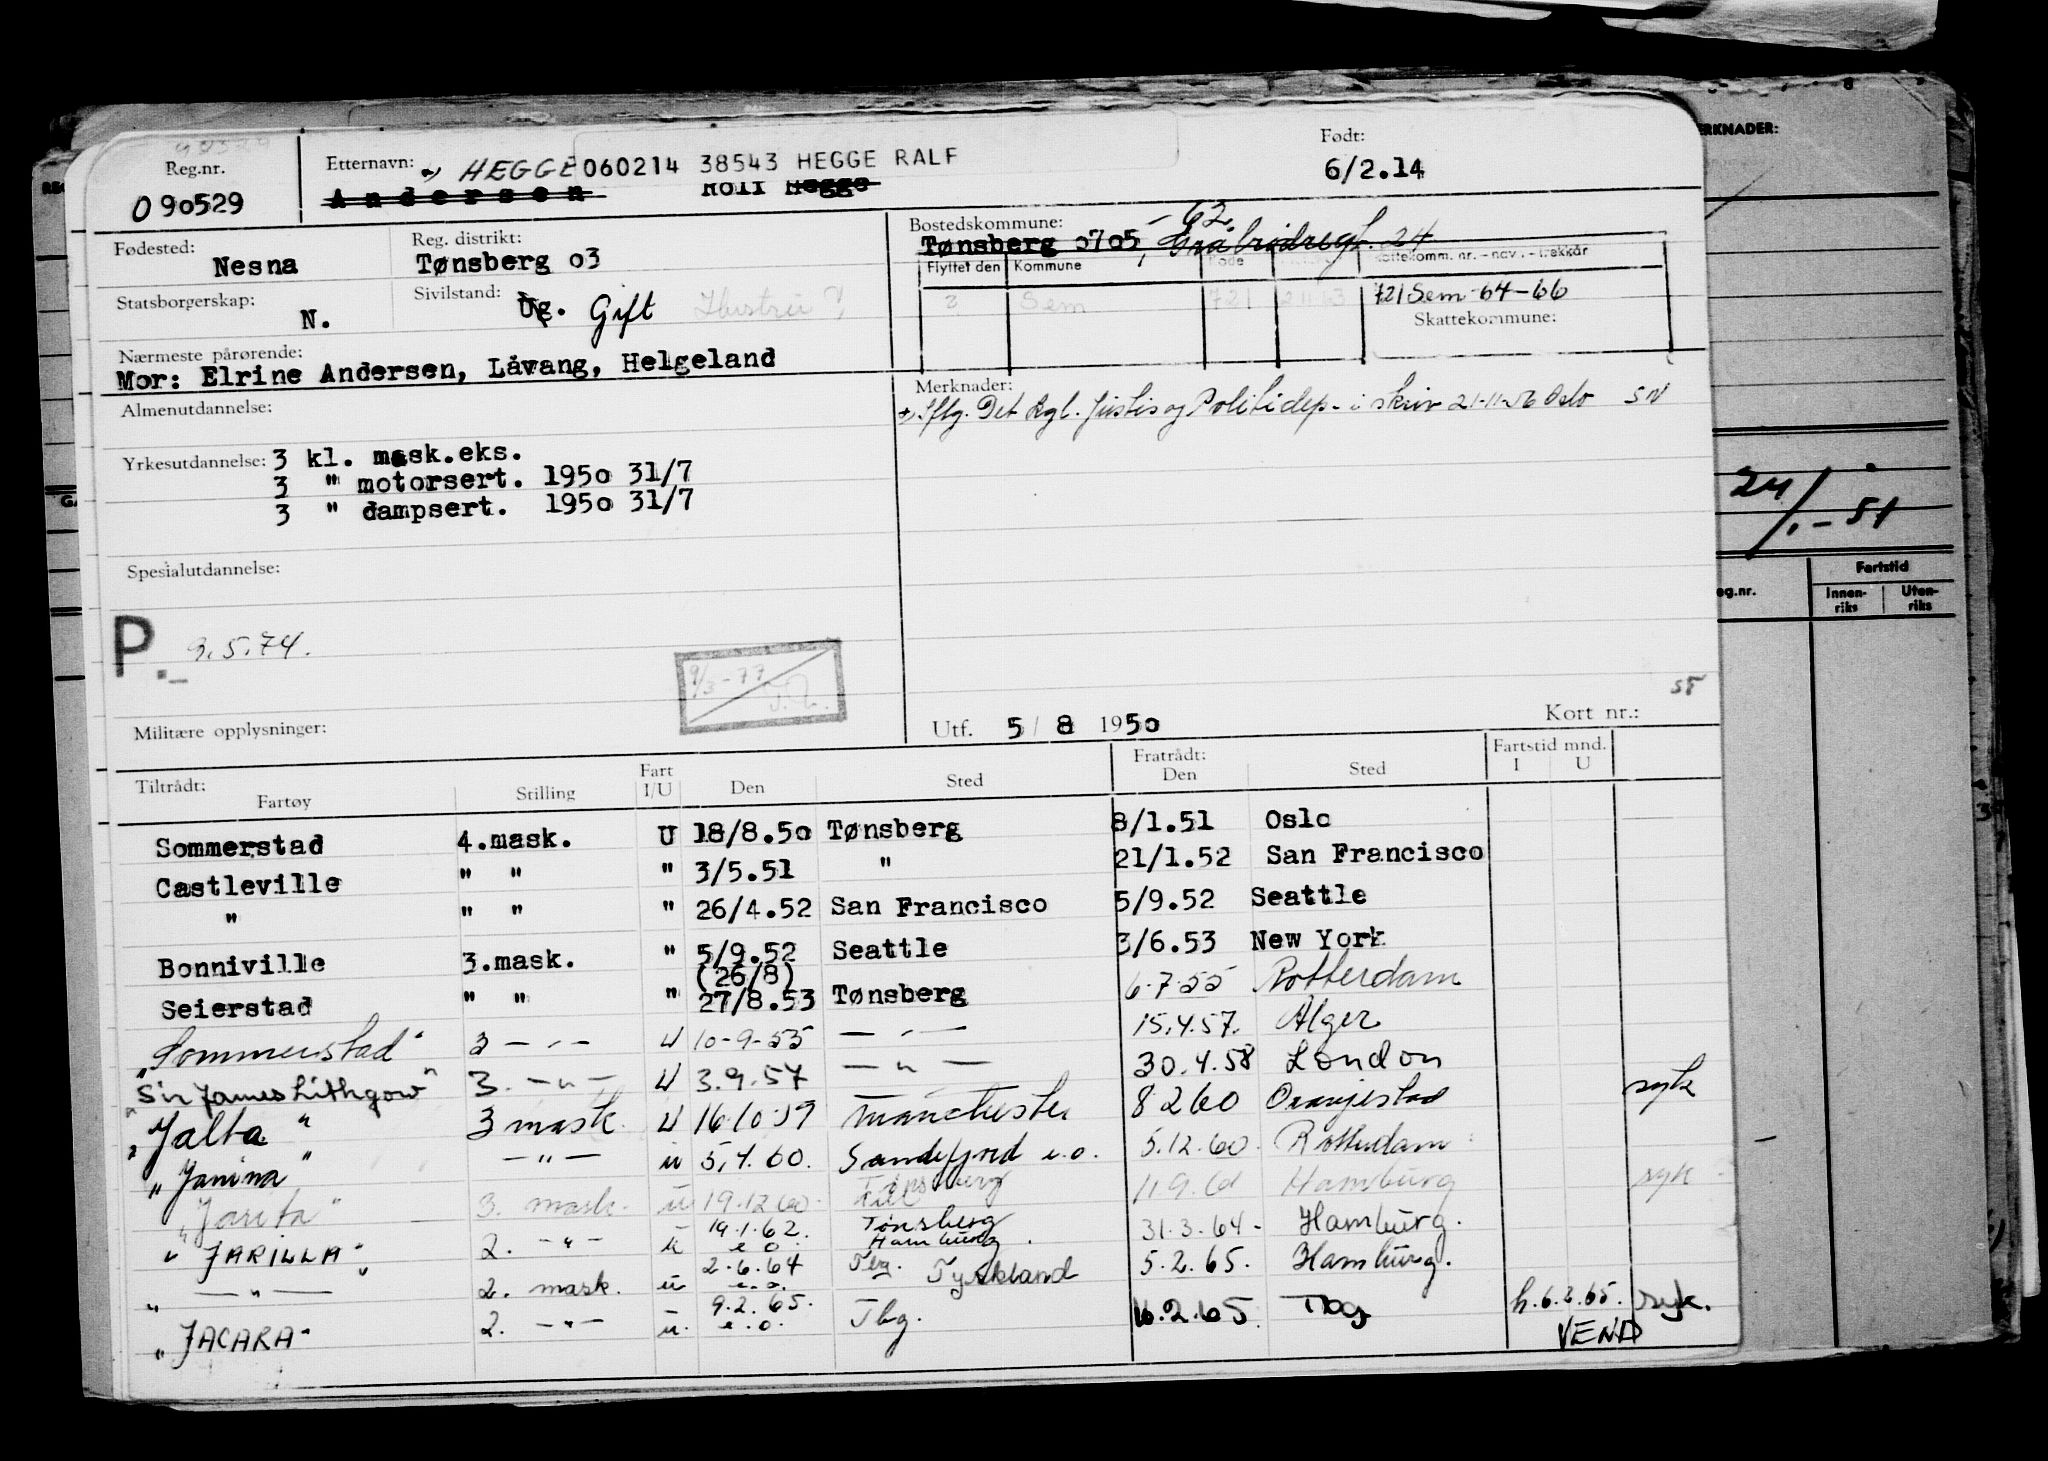 Reg.nr.
090529
Etternavn: *) HEGGE 060214 38543 HEGGE RALF
Andersen Rolf Hegge
Født:
6/2.14
Fødested: Nesna
Reg. distrikt: Tønsberg o3
Bostedskommune: -62.
Tønsberg o7o5, Gråbrødregt. 24
Statsborgerskap: N.
Sivilstand: Ug. Gift Hustru
Flyttet den Kommune
3 Sem 721 721 Sem 64-66
Skattekommune:
Nærmeste pårørende:
Mor: Elrine Andersen, Låvang, Helgeland
Almenutdannelse:
Merknader:
*) Iflg. Det Kgl. Justis og Politidep. i skriv 21-11-56 Oslo SN
Yrkesutdannelse: 3 kl. mask.eks.
3 " motorsert. 195o 31/7
3 " dampsert. 195o 31/7
Spesialutdannelse:
P. 9.5.74.
9/3-77
Militære opplysninger:
Utf. 5/8 195o
Kort nr.:
Tiltrådt: Fartøy Stilling Fart I/U Den Sted Fratrådt: Den Sted Fartstid mnd. I U
Sommerstad 4.mask. U 18/8.5o Tønsberg 8/1.51 Oslo
Castleville " " " 3/5.51 " 21/1.52 San Francisco
" " " " 26/4.52 San Francisco 5/9.52 Seattle
Bonniville 3.mask. " 5/9.52 Seattle 3/6.53 New York
(26/8)
Seierstad " " " 27/8.53 Tønsberg 6.7.55 Rotterdam
"Sommerstad" 3 -"- U 10-9-55 -"- 15.4.57. Alger
"Sir James Lithgow" 3. -"- U 3.9.57 -"- 30.4.58 London
"Jalta" 3 mask. U 16 10 59 Manchester 8 2 60 Oranjestad syk
"Janina" -"- u 5.4.60. Sandefjord e.o. 5.12.60. Rotterdam
"Jarita" 3. mask. u 19.12 60. Tønsberg 11 9 61 Hamburg syk
"JARILLA" 2. -"- u 19.1.62. e.o. Tønsberg Hamburg. 31.3.64. Hamburg.
" -"- 2. mask. u 2.6.64 e.o. Tbg. Tyskland 5.2.65. Hamburg.
"JACARA" 2. -"- u. 9.2.65. e.o. Tbg. 16.2.65. Tbg h.6.2.65. syk.
VEND
ERKNADER:
24/1-51
eg.nr.
Fartstid
Innen-
riks
Uten-
riks